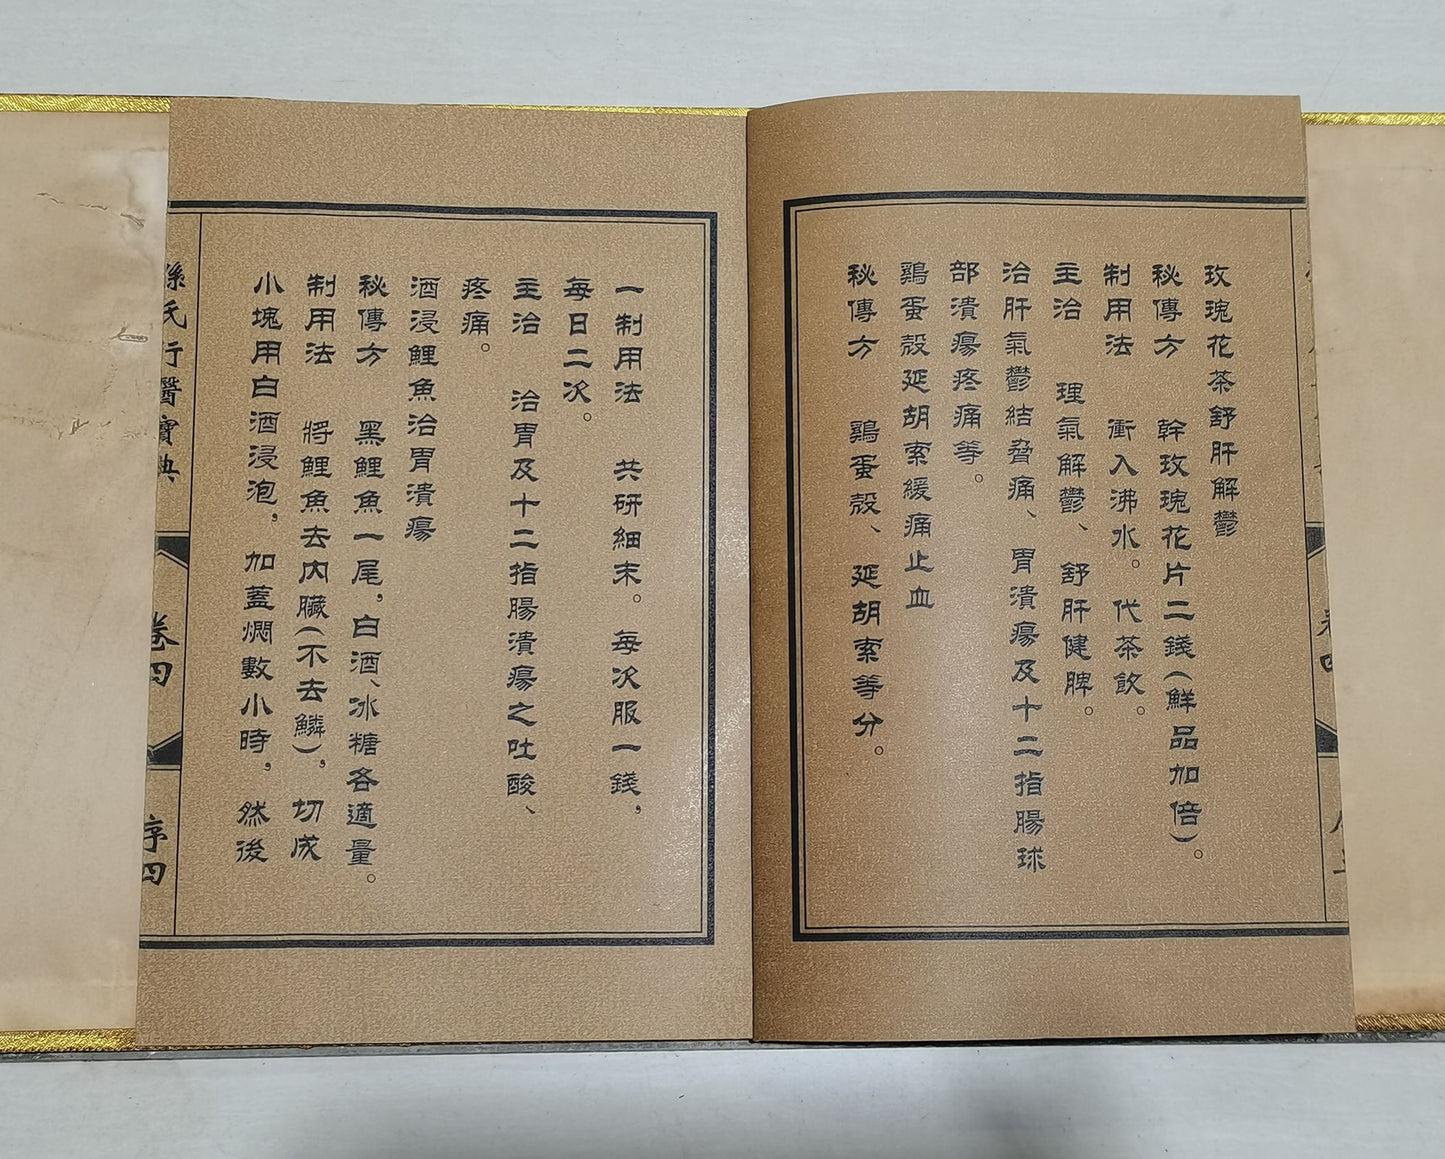 玫瑰花茶舒肝解鬱
秘傳方　幹玫瑰花片二錢(鮮品加倍)。
制用法　衝入沸水。代茶飲。
主治　理氣解鬱、舒肝健脾。
治肝氣鬱結脅痛、胃潰瘍及十二指腸球
部潰瘍疼痛等。
鷄蛋殼延胡索緩痛止血
秘傳方　鷄蛋殼、延胡索等分。
一制用法　共研細末。每次服一錢，
每日二次。
主治　治胃及十二指腸潰瘍之吐酸、
疼痛。
酒浸鯉魚治胃潰瘍
秘傳方　黑鯉魚一尾，白酒、冰糖各適量。
制用法　將鯉魚去内臟(不去鱗)，切成
小塊用白酒浸泡，加蓋燜數小時，然後
孫氏行醫寶典
卷四
序四